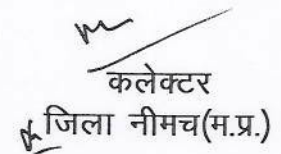 कलेक्टर
जिला नीमच(म.प्र.)